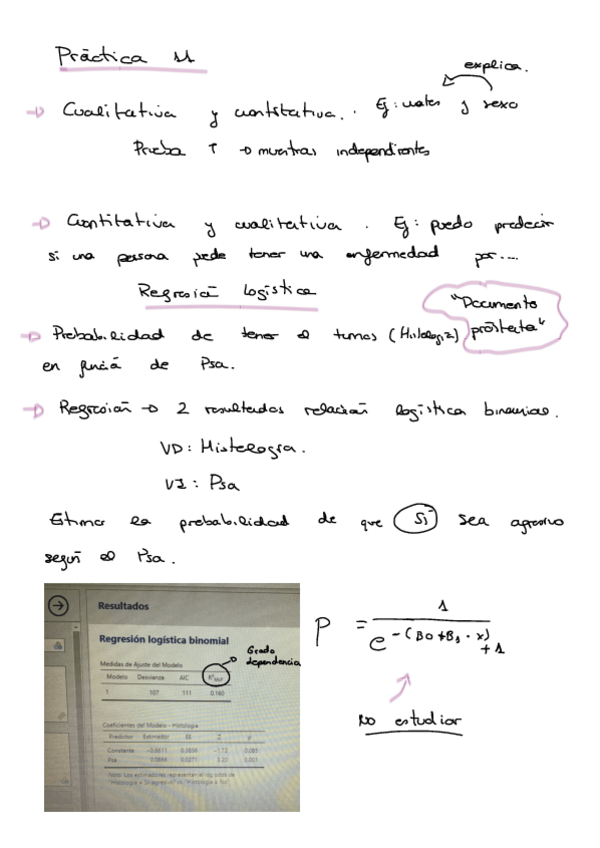 Práctica 11
explica.
Cualitativa y cuantitativa. Ej: notas y sexo
Prueba T → muestras independientes
Cuantitativa y cualitativa. Ej: puedo predecir
si una persona puede tener una enfermedad por....
Regresión logística
"Documento
próstata"
Probabilidad de tener el tumor (Histología)
en función de Psa.
Regresión → 2 resultados relación logística binomial.
VD: Histología.
VI: Psa
Estimar la probabilidad de que Si sea agresivo
según el Psa.
Resultados
Regresión logística binomial
Grado
dependencia
Medidas de Ajuste del Modelo
Modelo Desvianza AIC R²McF
1 107 111 0.160
Coeficientes del Modelo - Histología
Predictor Estimador EE Z p
Constante 0.085
Psa 0.0271 0.001
Nota. Los estimadores representan el log odds de
P = 1 / e^-(B0+B1·x) +1
No estudiar